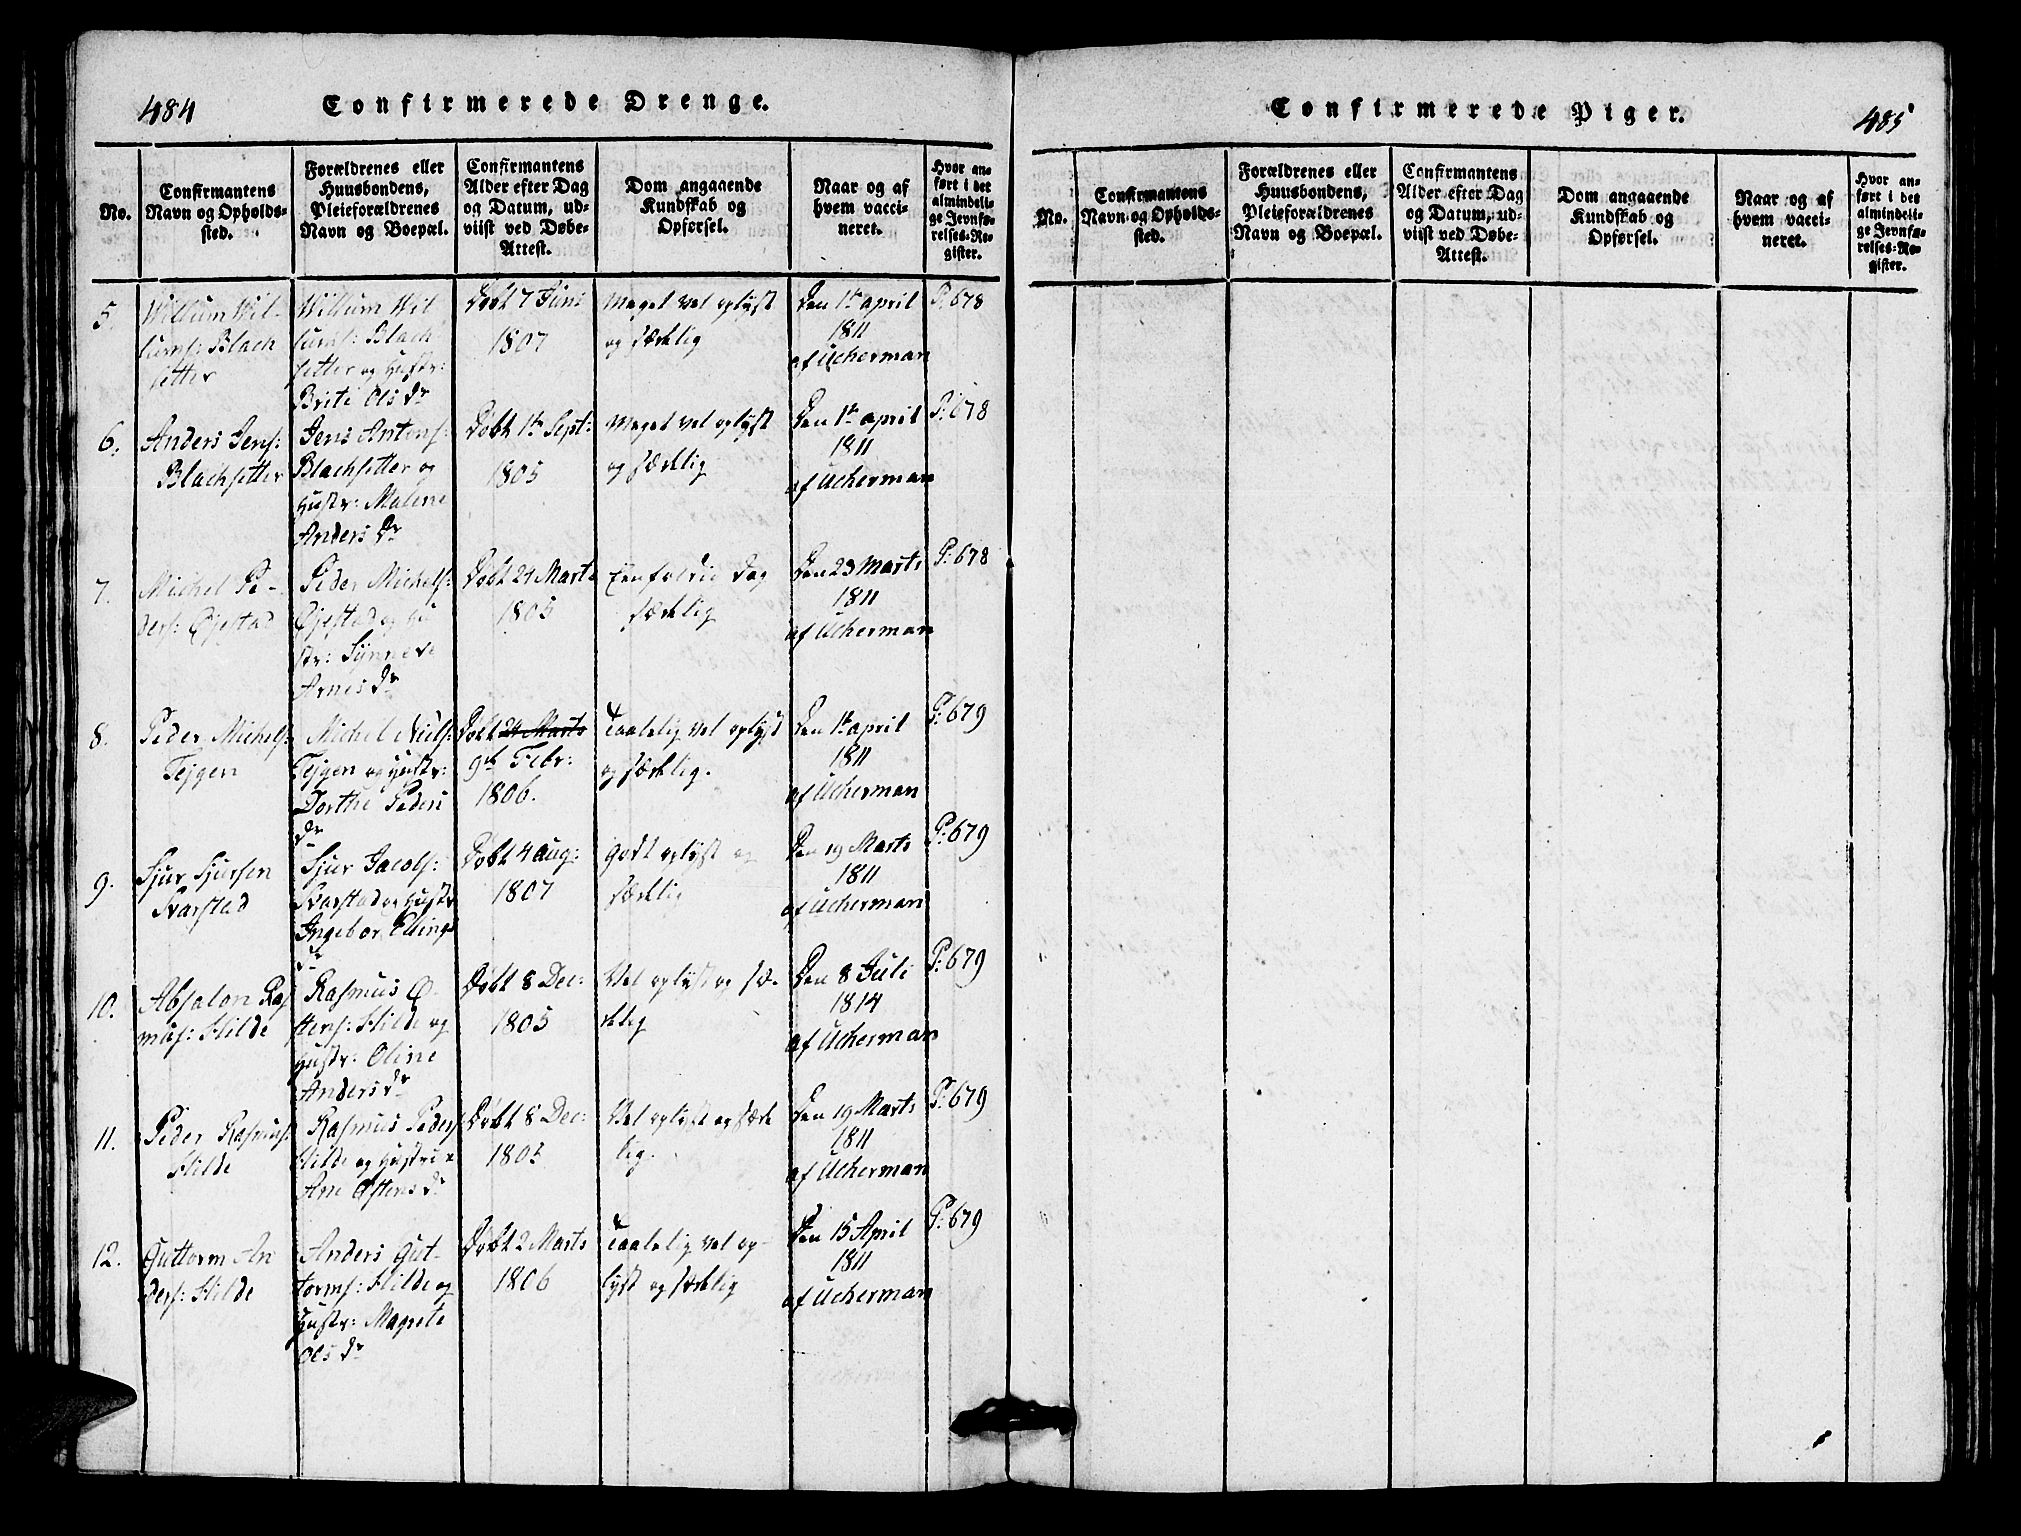 484
Confirmerede Drenge.
No.
Confirmantens
Navn og Opholds-
sted.
Forældrenes eller
Huusbondens,
Pleieforældrenes
Navn og Boepæl.
Confirmantens
Alder efter Dag
og Datum, ud-
viist ved Døbe-
Attest.
Dom angaaende
Kundskab og
Opførsel.
Naar og af
hvem vacci-
neret.
Hvor an-
ført i det
almindeli-
ge Jevnfø-
relses-Re-
gister.
5.
Willum Wil-
lums: Blach
setter
Willum Wil
lums: Blach
setter og Hustr:
Brite Ols Dr
Døbt 7 Juni
1807
Meget vel oplyst
og sædelig
Den 1te april
1811
af Ucherman
P: 678
6.
Anders Jens:
Blachsetter
Jens Antons:
Blachsetter og
Hustr: Malene
Anders Dr
Døbt 1te Sept:
1805
Meget vel oplyst
og sædelig
Den 1te april
1811
af Ucherman
P: 678
7.
Michel Pe-
ders: Øjestad
Peder Michels:
Øjestad og Hu
str: Synneve
Arnes Dr
Døbt 24 Marts
1805
sædelig
Den 23 Marts
1811
af Ucherman
P: 678
8.
Peder Michels:
Tejgen
Michel Niels:
Tejgen og Hustr:
Dorthe Peders
Dr
Døbt 24 Marts
9de Febr:
1806.
Taalelig vel oplyst
og sædelig.
Den 1te april
1811
af Ucherman
P: 679
9.
Sjur Sjursen
Svarstad
Sjur Jacobs:
Svarstad og Hustr
Ingebor Ellings
Dr
Døbt 4 Aug:
1807
Godt oplyst og
sædelig
Den 19 Marts
1811
af Ucherman
P: 679
10.
Absalon Ras
mus: Hilde
Rasmus Ø-
stens: Hilde og
Hustr: Oline
Anders Dr
Døbt 8 Dec:
1805
Vel oplyst og sæ-
delig
Den 8 Juli
1814
af Ucherman
P: 679
11.
Peder Rasmus:
Hilde
Rasmus Peders
Hilde og Hustru
Ane Østens Dr
Døbt 8 Dec:
1805
Vel oplyst og sæde
lig.
Den 19 Marts
1811
af Ucherman
P: 679
12.
Guttorm An
ders: Hilde
Anders Gut-
torms: Hilde og
Hustr: Magrete
Ols Dr
Døbt 2 Marts
1806
Taalelig vel op-
lyst og sædelig
Den 15 April
1811
af Ucherman
P: 679
Confirmerede Piger.
485
No.
Confirmantens
Navn og Opholds-
sted.
Forældrenes eller
Huusbondens,
Pleieforældrenes
Navn og Boepæl.
Confirmantens
Alder efter Dag
og Datum, ud-
viist ved Døbe-
Attest.
Dom angaaende
Kundskab og
Opførsel.
Naar og af
hvem vacci-
neret.
Hvor an-
ført i det
almindeli-
ge Jevnfø-
relses-Re-
gister.